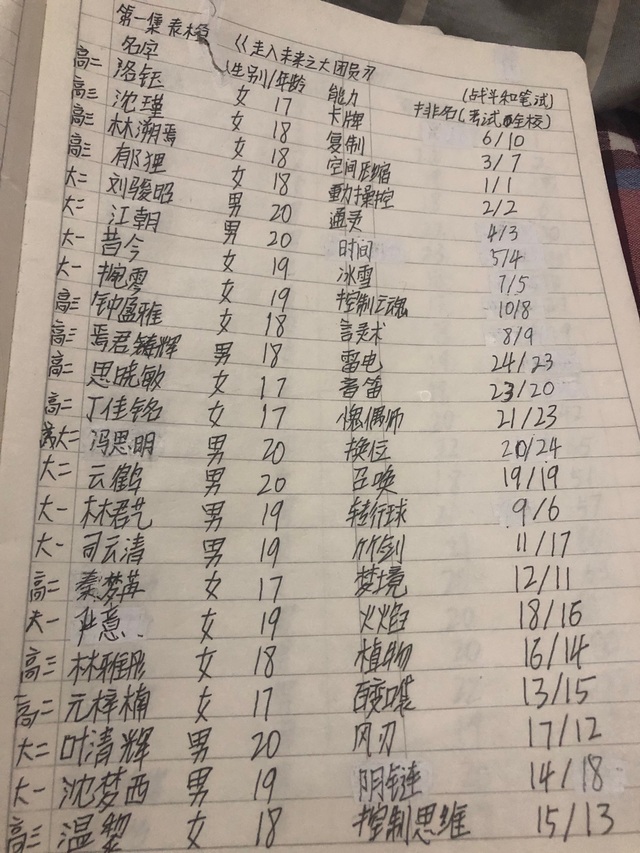 第一集表格 《走入未来之大团员》
名字 性别/年龄 能力 排名(考试全校) (战斗和笔试)
高二 洛钰 女 17 卡牌 6/10
高三 沈瑾 女 18 复制 3/7
高三 林溯焉 女 18 空间压缩 1/1
高三 郁狸 女 18 重力操控 2/2
大二 刘骏昭 男 20 通灵 4/3
大二 江朝 男 20 时间 5/4
大一 昔今 女 19 冰雪 7/5
大一 零 女 19 控制云魂 10/8
高三 钟盈雅 女 18 言灵术 8/9
高三 焉君铸辉 男 18 雷电 24/23
高二 思晓敏 女 17 音笛 23/20
高二 丁佳铭 女 17 傀偶师 21/23
大二 冯思明 男 20 换位 20/24
大二 云鹤 男 20 召唤 19/19
大一 林君艺 男 19 转行球 9/6
大一 司云清 男 19 竹剑 11/17
高二 秦梦苒 女 17 梦境 12/11
大一 意 女 19 火焰 18/16
高三 林雅彤 女 18 植物 16/14
高二 元梓楠 女 17 百变 13/15
大二 叶清辉 男 20 风刃 17/12
大一 沈梦西 男 19 阴链 14/18
高三 温黎 女 18 控制思维 15/13